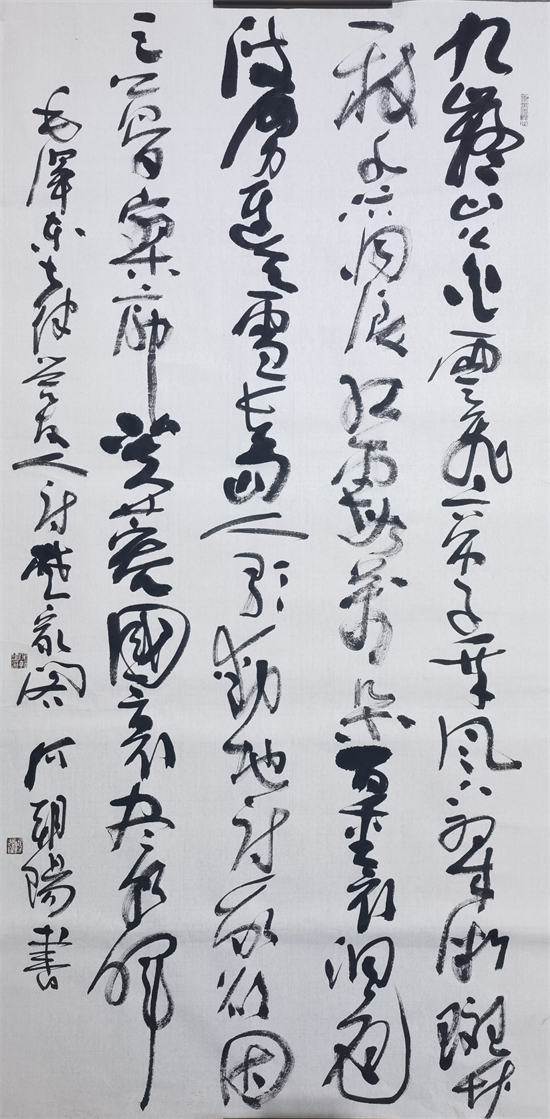 九嶷山上白雲飛帝子乘風下翠微斑竹
一枝千滴淚紅霞萬朵百重衣洞庭
波涌連天雪長島人歌動地詩我欲因
之夢寥廓芙蓉國裏盡朝暉
毛澤東七律答友人詩楚歌閣何朝陽書